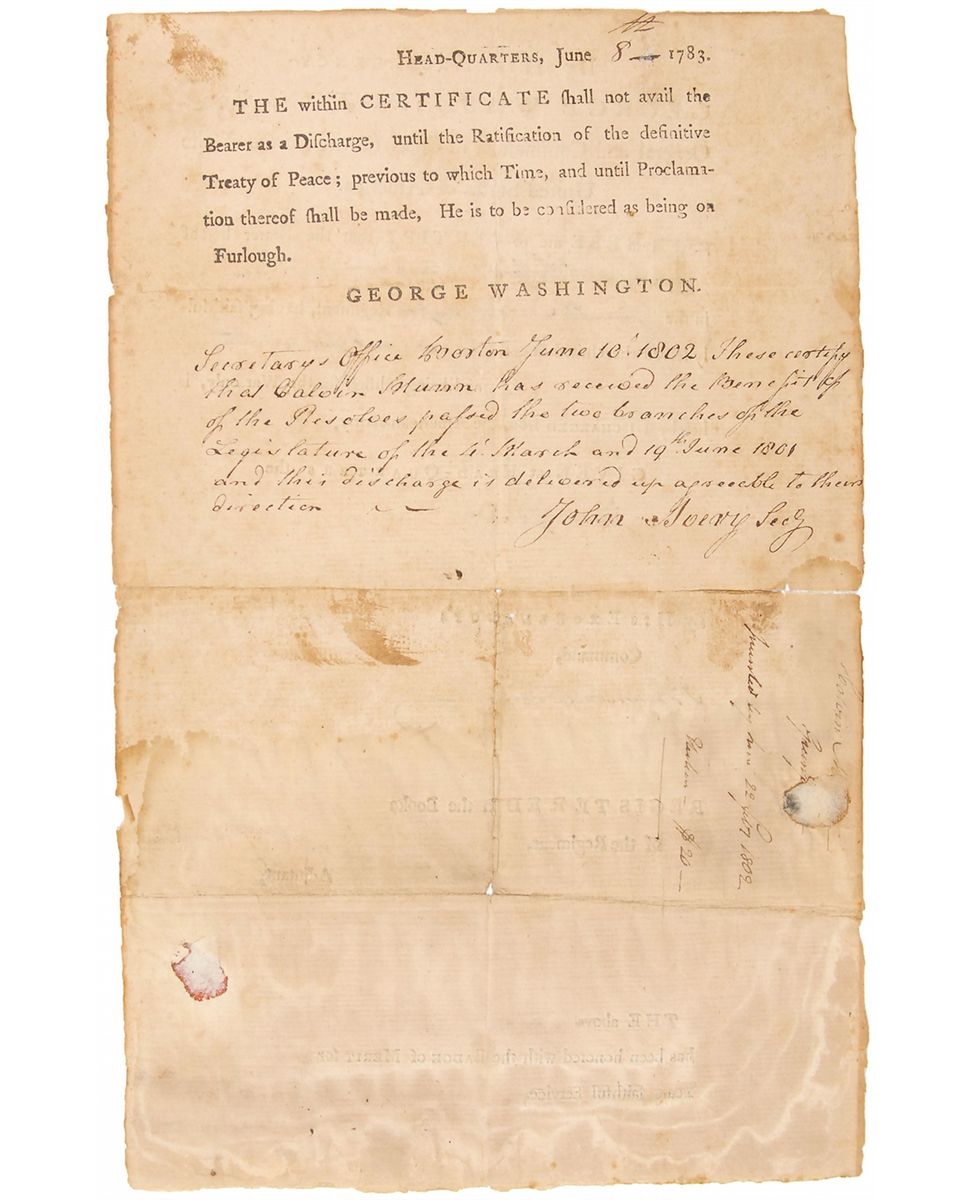 HEAD-QUARTERS, June 8th 1783.
THE within CERTIFICATE ſhall not avail the
Bearer as a Diſcharge, until the Ratification of the definitive
Treaty of Peace; previous to which Time, and until Proclama-
tion thereof ſhall be made, He is to be conſidered as being on
Furlough.
GEORGE WASHINGTON.
Secretarys Office Boston June 10. 1802 These certify
that Calvin Munn has received the Benefit of
of the Resolves paſsed the two branches of the
Legislature of the 4. March and 19th June 1801
and this discharge is delivered up agreeable to their
direction
John Avery Secy
1802
$20
REGISTERED in the Books
of the Regiment,
Adjutant
THE above
has been honored with the BADGE of MERIT for
faithful Service.